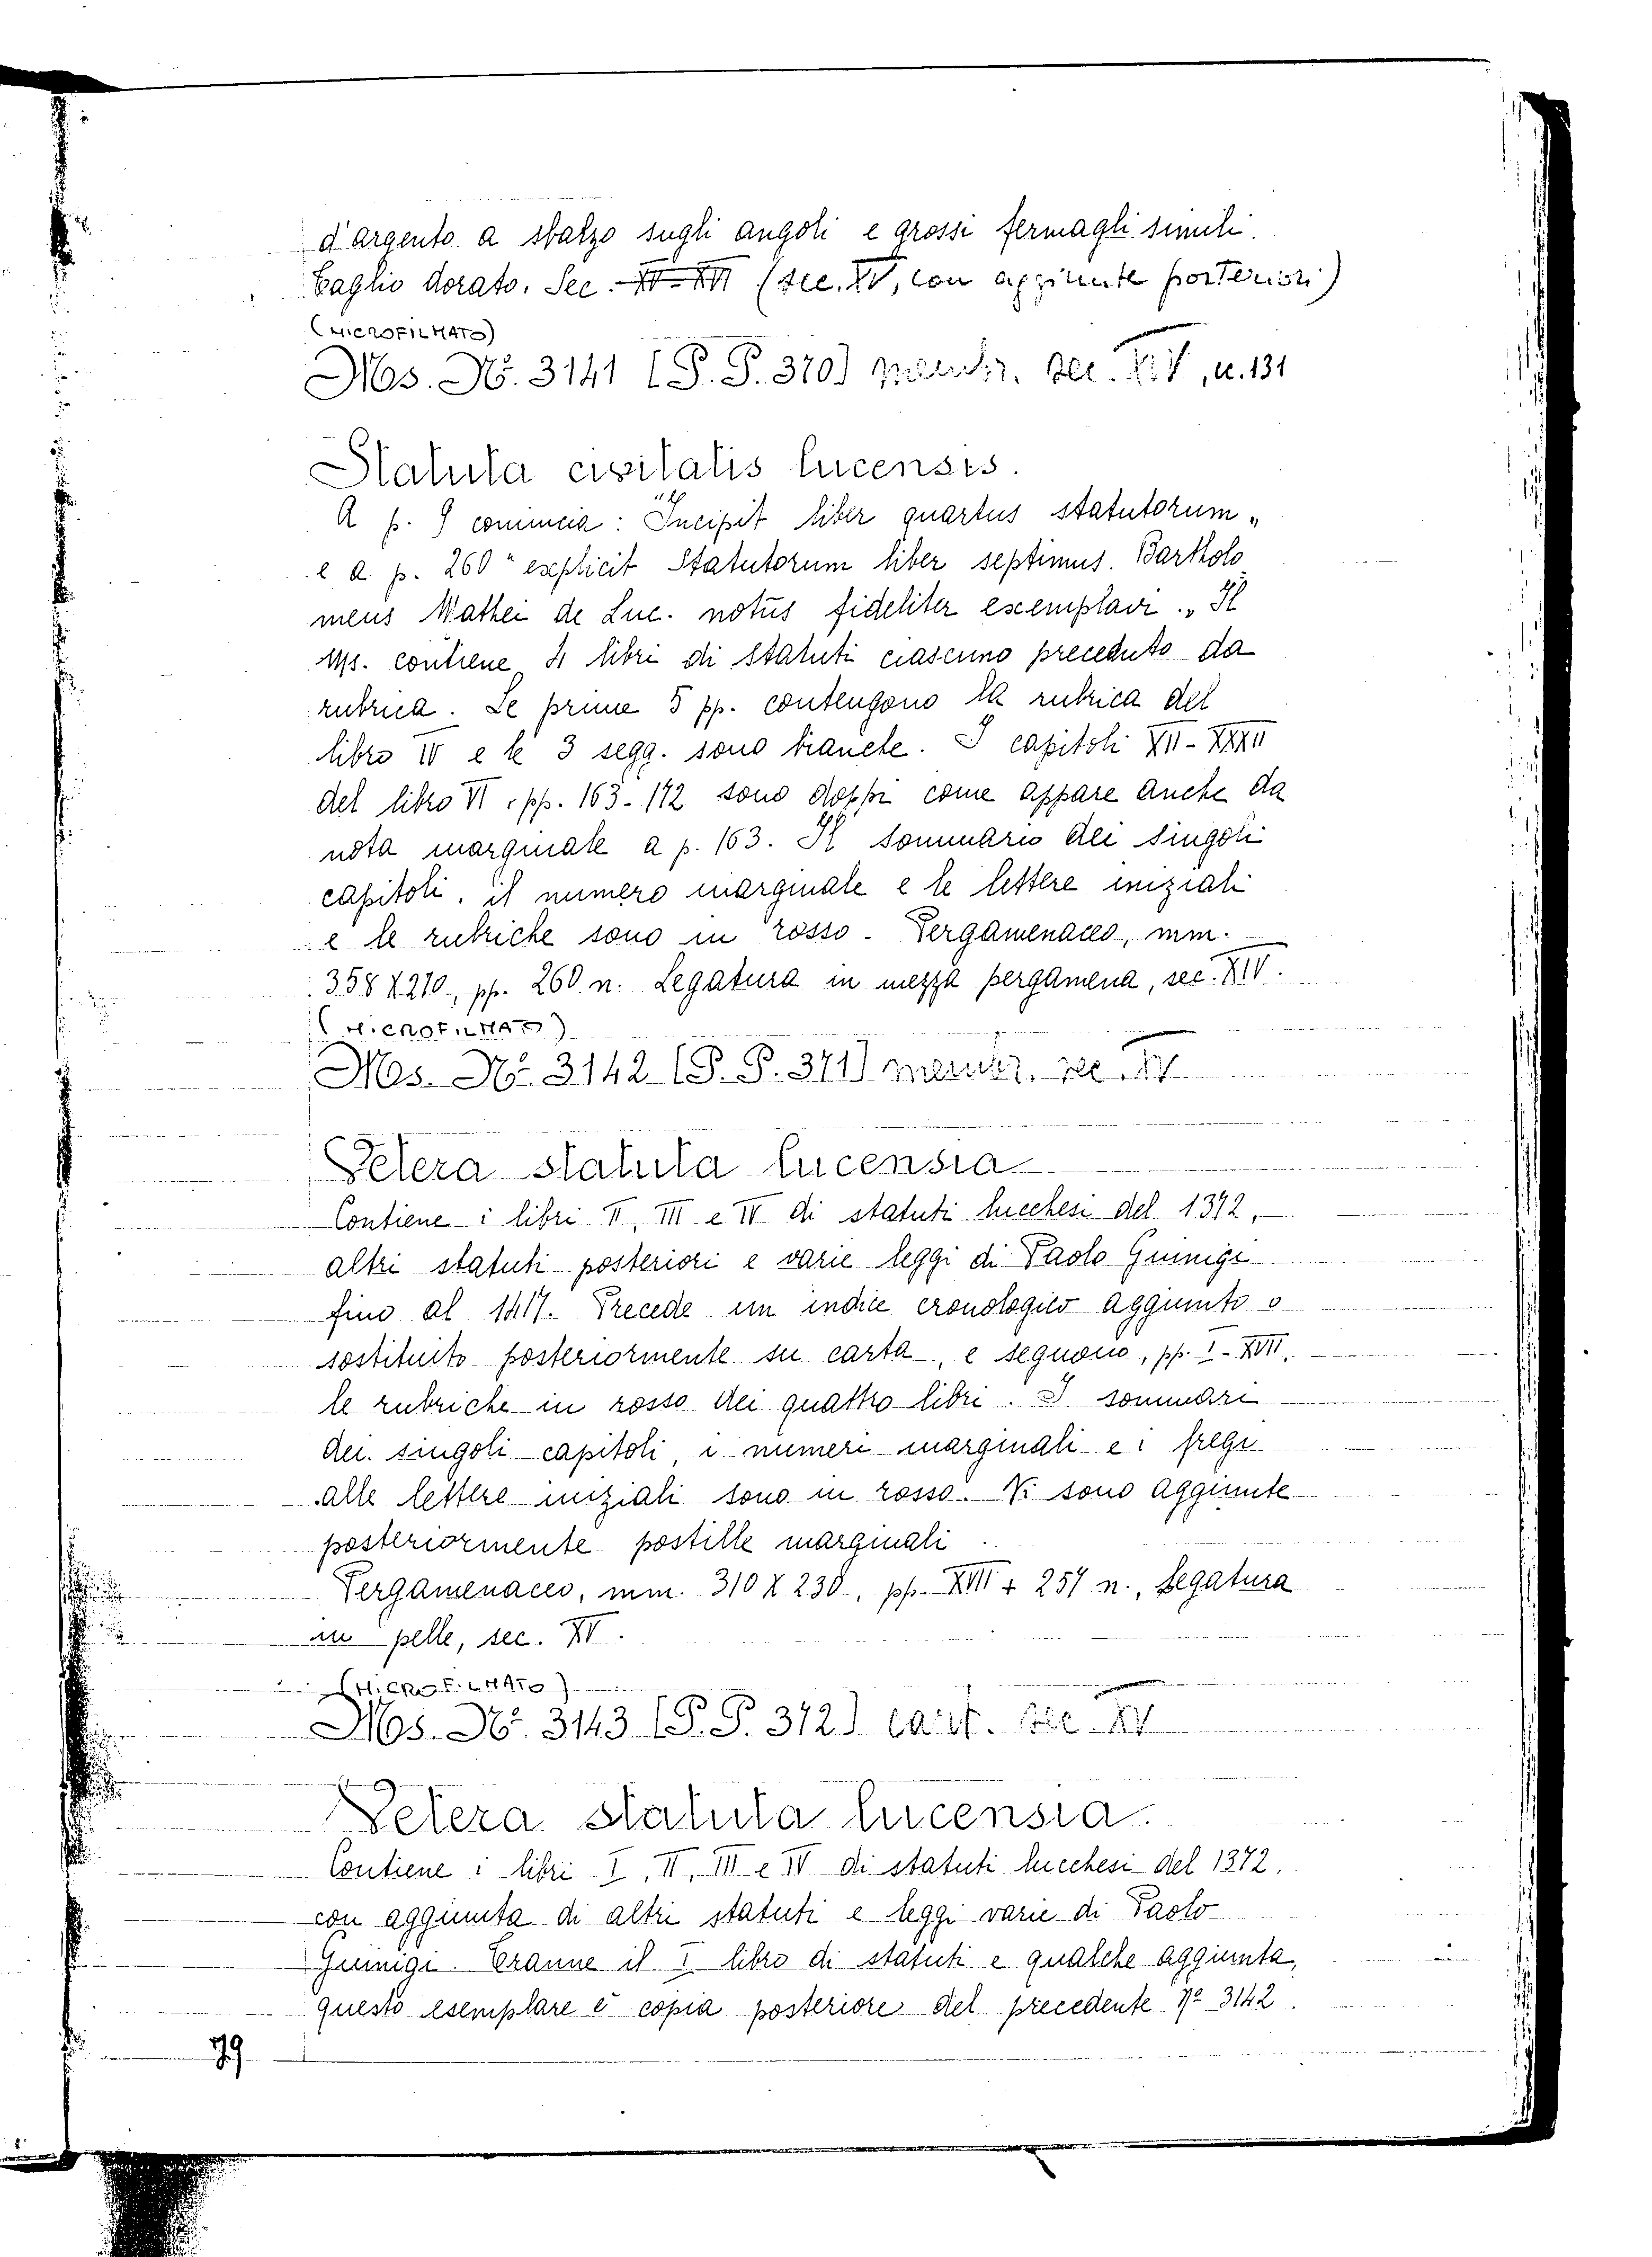 d'argento a sbalzo sugli angoli e grossi fermagli simili.
Taglio dorato. Sec. XV-XVI (sec. XV, con aggiunte posteriori)
(MICROFILMATO)
Ms. No. 3141 [P. P. 370] membr. sec. XIV, c. 131
Statuta civitatis lucensis.
A p. 9 comincia: "Incipit liber quartus statutorum„
e a p. 260 "explicit Statutorum liber septimus. Bartholo
meus Mathei de Luc. notus fideliter exemplavi.„ Il
Ms. contiene 4 libri di statuti ciascuno preceduto da
rubrica. Le prime 5 pp. contengono la rubrica del
libro IV e le 3 segg. sono bianche. I capitoli XII-XXXII
del libro VI, pp. 163-172 sono doppi come appare anche da
nota marginale a p. 163. Il sommario dei singoli
capitoli, il numero marginale e le lettere iniziali
e le rubriche sono in rosso. Pergamenaceo, mm.
358 X 210, pp. 260 n. Legatura in mezza pergamena, sec. XIV.
(MICROFILMATO)
Ms. No. 3142 [P. P. 371] membr. sec. XV
Vetera statuta lucensia
Contiene i libri II, III e IV di statuti lucchesi del 1372,
altri statuti posteriori e varie leggi di Paolo Guinigi
fino al 1417. Precede un indice cronologico aggiunto o
sostituito posteriormente su carta, e seguono, pp. I-XVII,
le rubriche in rosso dei quattro libri. I sommari
dei singoli capitoli, i numeri marginali e i fregi
alle lettere iniziali sono in rosso. Vi sono aggiunte
posteriormente postille marginali.
Pergamenaceo, mm. 310 X 230, pp. XVIII + 257 n., Legatura
in pelle, sec. XV.
(MICROFILMATO)
Ms. No. 3143 [P. P. 372] cart. sec. XV
Vetera statuta lucensia.
Contiene i libri I, II, III e IV di statuti lucchesi del 1372,
con aggiunta di altri statuti e leggi varie di Paolo
Guinigi. Tranne il I libro di statuti e qualche aggiunta,
questo esemplare è copia posteriore del precedente No 3142.
79